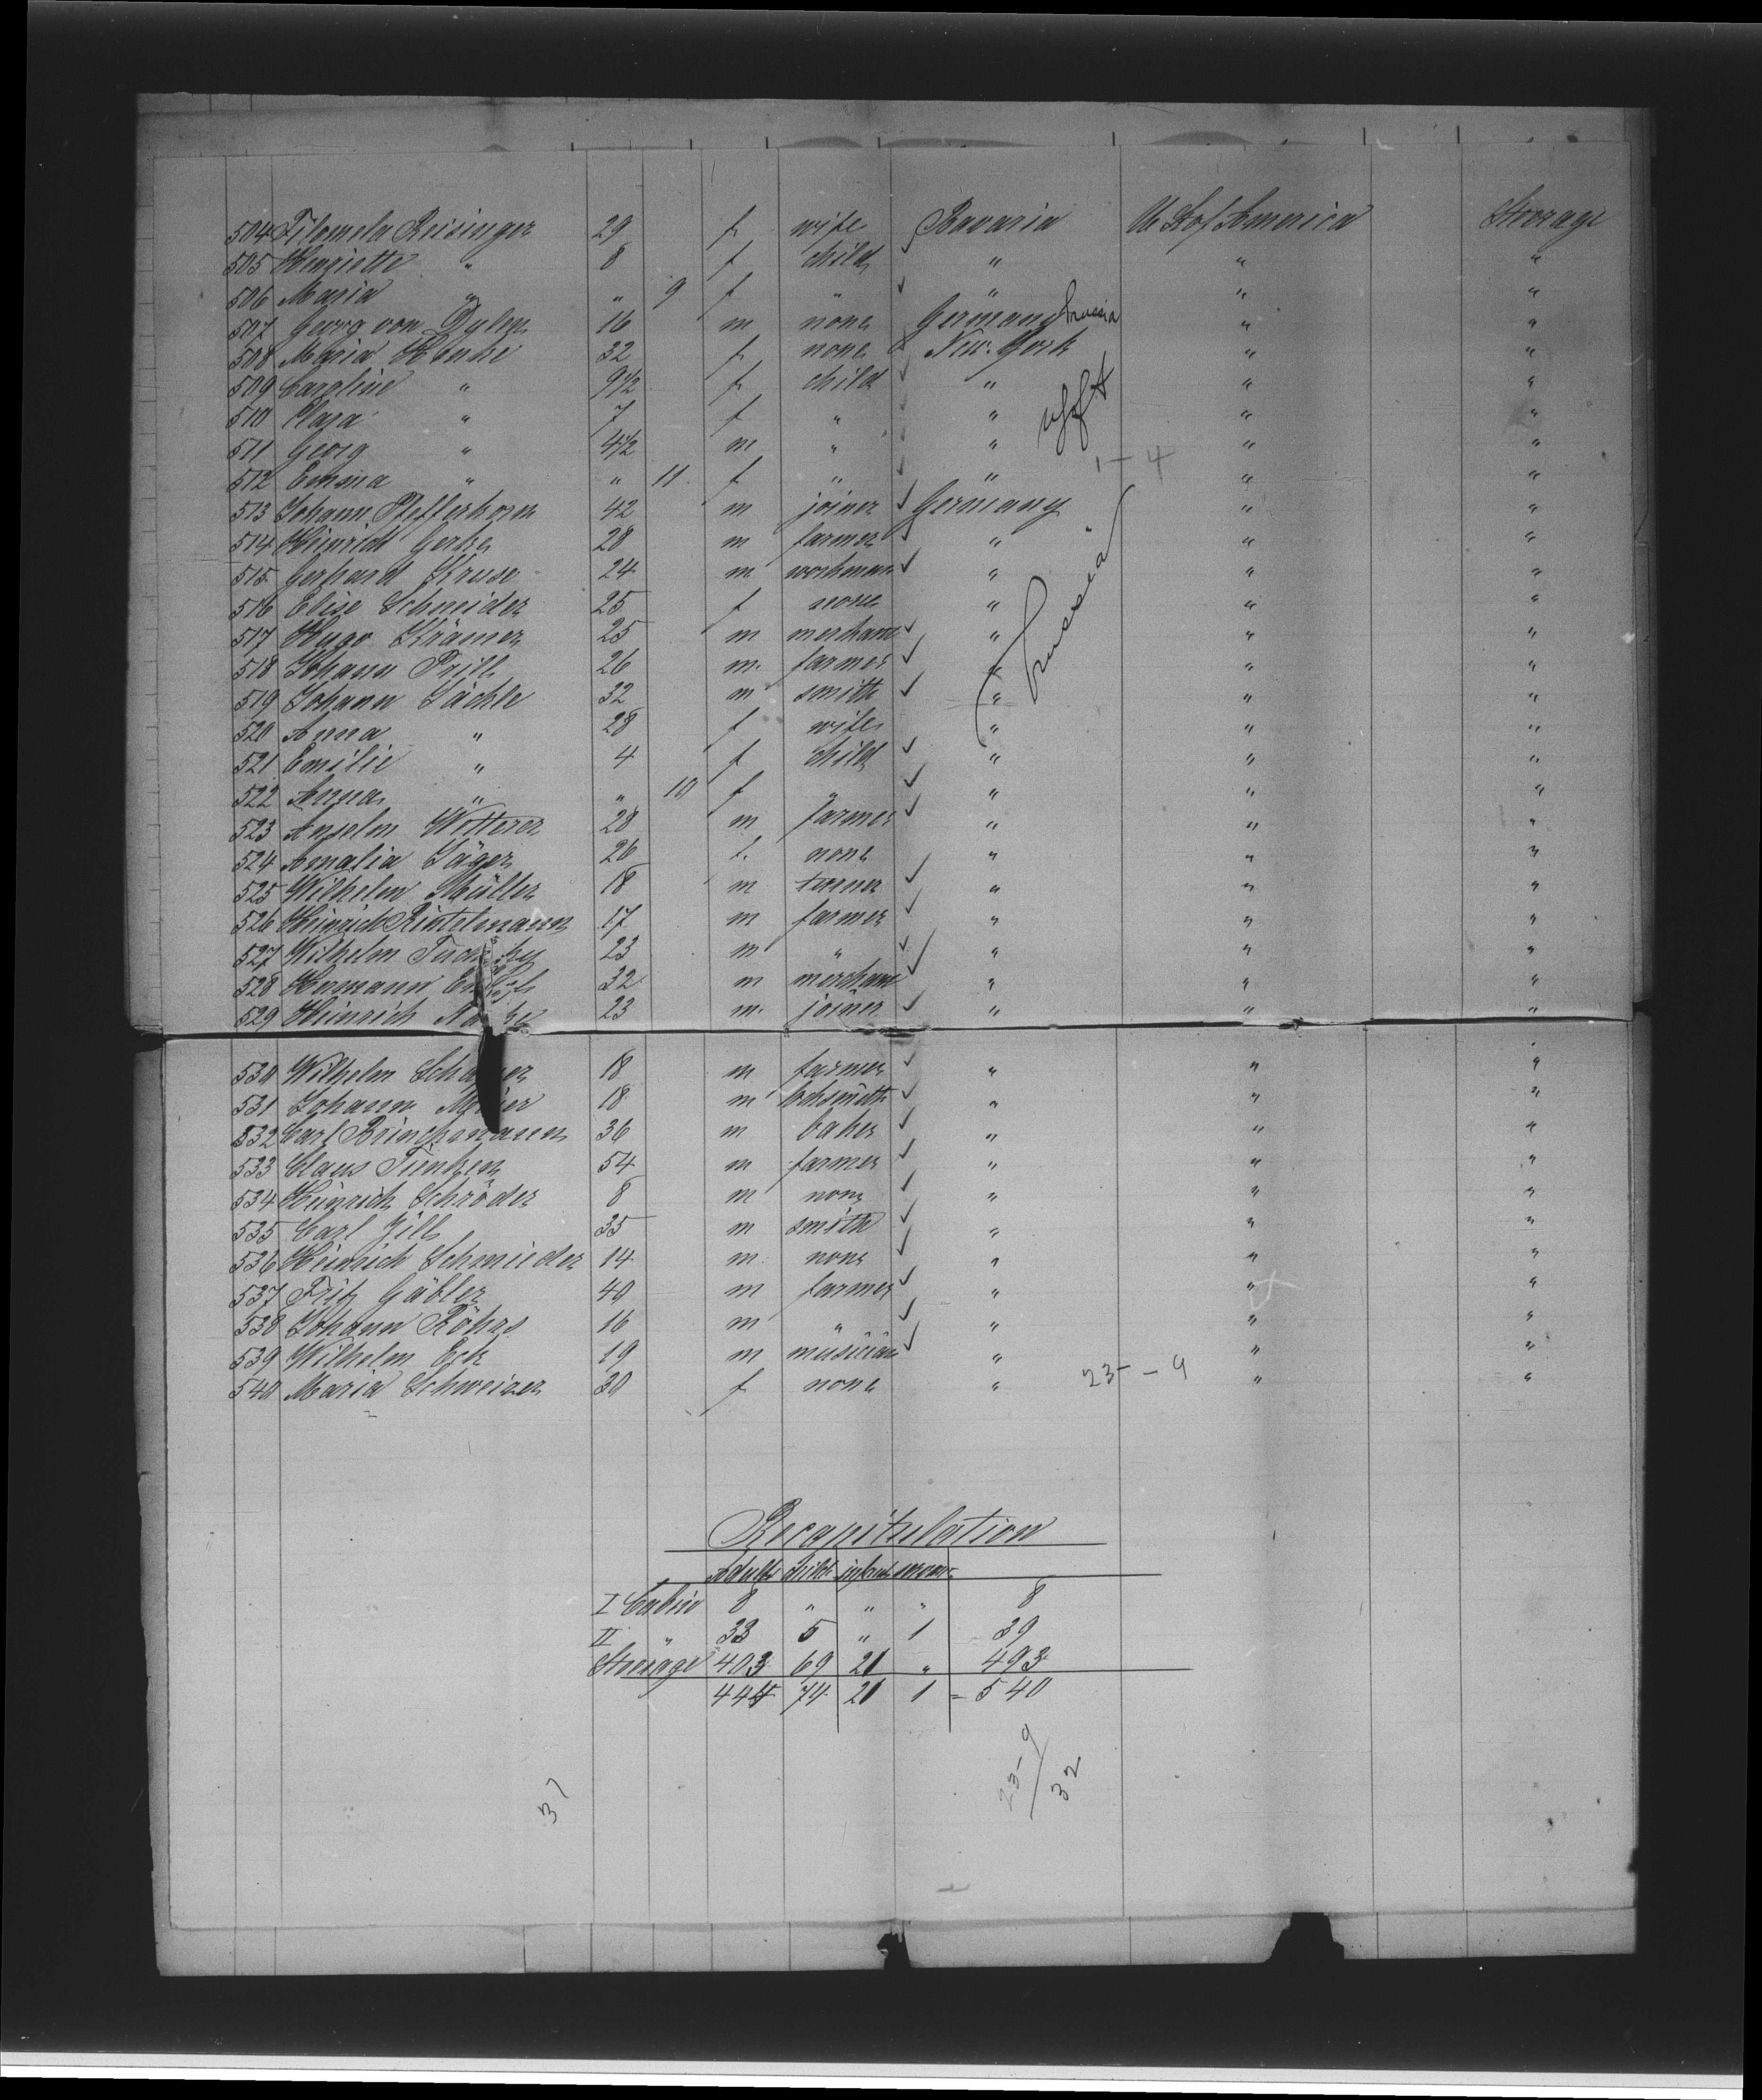 504 Filomela Reisinger 29 f wife Bavaria U. St. of America Steerage
505 Henriette " 8 f child " " "
506 Maria " " 9 f " " " "
507 Georg von 16 m none Germany Prussia " "
508 Maria 32 f none New-York " "
509 Caroline " 9 1/2 f child " " "
510 Clara " 7 f " " " "
511 Georg " 4 1/2 m " " " "
512 Emma " " 11 f " " " "
1 - 4
513 Johann Pfefferkorn 42 m joiner Germany " "
514 Heinrich Gerke 28 m farmer " " "
515 Gerhard Kruse 24 m workman " " "
516 Elise Schneider 25 f none " " "
517 Hugo Krämer 25 m merchant " " "
Prussia
518 Johann Prill 26 m. farmer " " "
519 Johann Jächle 32 m smith " " "
520 Anna " 28 f wife " " "
521 Emilie " 4 f child " " "
522 Anna " " 10 f " " " "
523 Anselm Witterer 28 m farmer " " "
524 Amalia Jäger 26 f. none " " "
525 Wilhelm Müller 18 m turner " " "
526 Heinrich Rintelmann 17 m farmer " " "
527 Wilhelm 23 m " " " "
528 Hermann 32 m merchant " " "
529 Heinrich 23 m. joiner " " "
530 Wilhelm 18 m farmer " " "
531 Johann 18 m locksmith " " "
532 Carl Brinckmann 36 m baker " " "
533 Claus Tienken 54 m farmer " " "
534 Heinrich Schröder 8 m none " " "
535 Carl Jill 35 m smith " " "
536 Heinrich Schmieder 14 m. none " " "
537 Fritz Gäbler 40 m farmer " " "
538 Johann Röhrs 16 m " " " "
539 Wilhelm Eck 19 m musician " " "
540 Maria Schweizer 30 f none " 23 - 9 " "
Recapitulation
Adults child infant
I Cabin 8 " " " 8
II " 33 5 " 1 39
Steerage 403 69 21 " 493
444 74 21 1 = 540
23-9
32
37